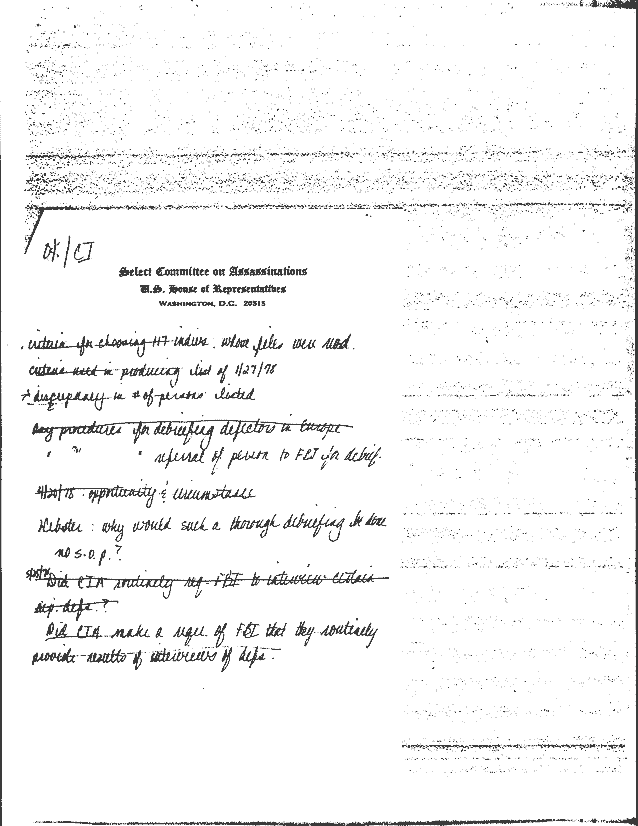 Select Committee on Assassinations
U.S. House of Representatives
WASHINGTON, D.C. 20515
criteria for choosing indivs. whose files were
criteria used in producing list of 1/27/78
discrepancy in # of persons listed
Any procedures for debriefing defectors in Europe
" " " referral of person to FBI for debrief.
opportunity & circumstances
Webster: why would such a thorough debriefing be done
no s.o.p.?
Did CIA routinely req. FBI to interview certain
defs.?
Did CIA make a req. of FBI that they routinely
provide results of interviews of defs.